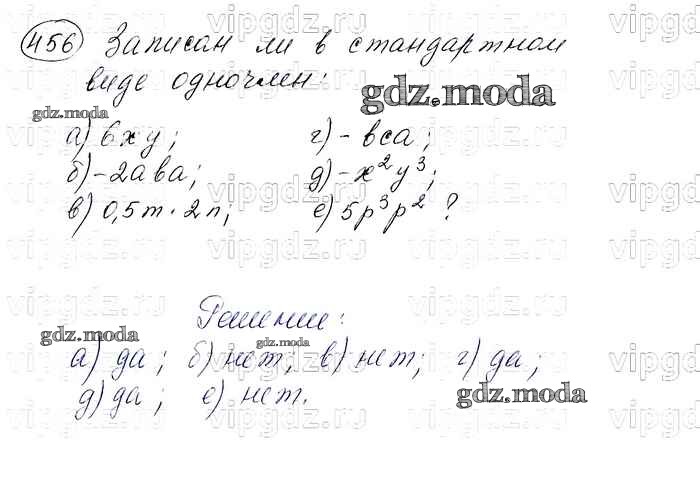 456 Записан ли в стандартном
виде одночлен:
gdz.moda
gdz.moda
а) 6xy; г) -вса;
б) -2ава; д) -x²y³;
в) 0,5m·2n; е) 5p³p² ?
Решение:
gdz.moda
gdz.moda
а) да; б) нет; в) нет; г) да;
д) да; е) нет.
gdz.moda